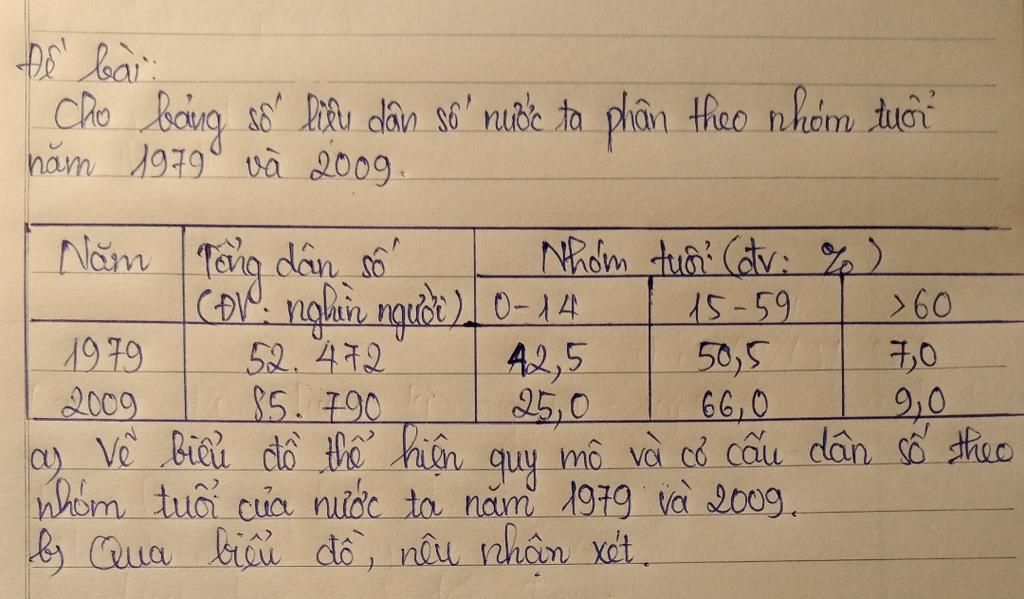 Đề bài:
Cho bảng số liệu dân số nước ta phân theo nhóm tuổi
năm 1979 và 2009.
Năm Tổng dân số Nhóm tuổi (đv: %)
(ĐV: nghìn người) 0-14 15-59 >60
1979 52.472 42,5 50,5 7,0
2009 85.790 25,0 66,0 9,0
a) Vẽ biểu đồ thể hiện quy mô và cơ cấu dân số theo
nhóm tuổi của nước ta năm 1979 và 2009.
b) Qua biểu đồ, nêu nhận xét.